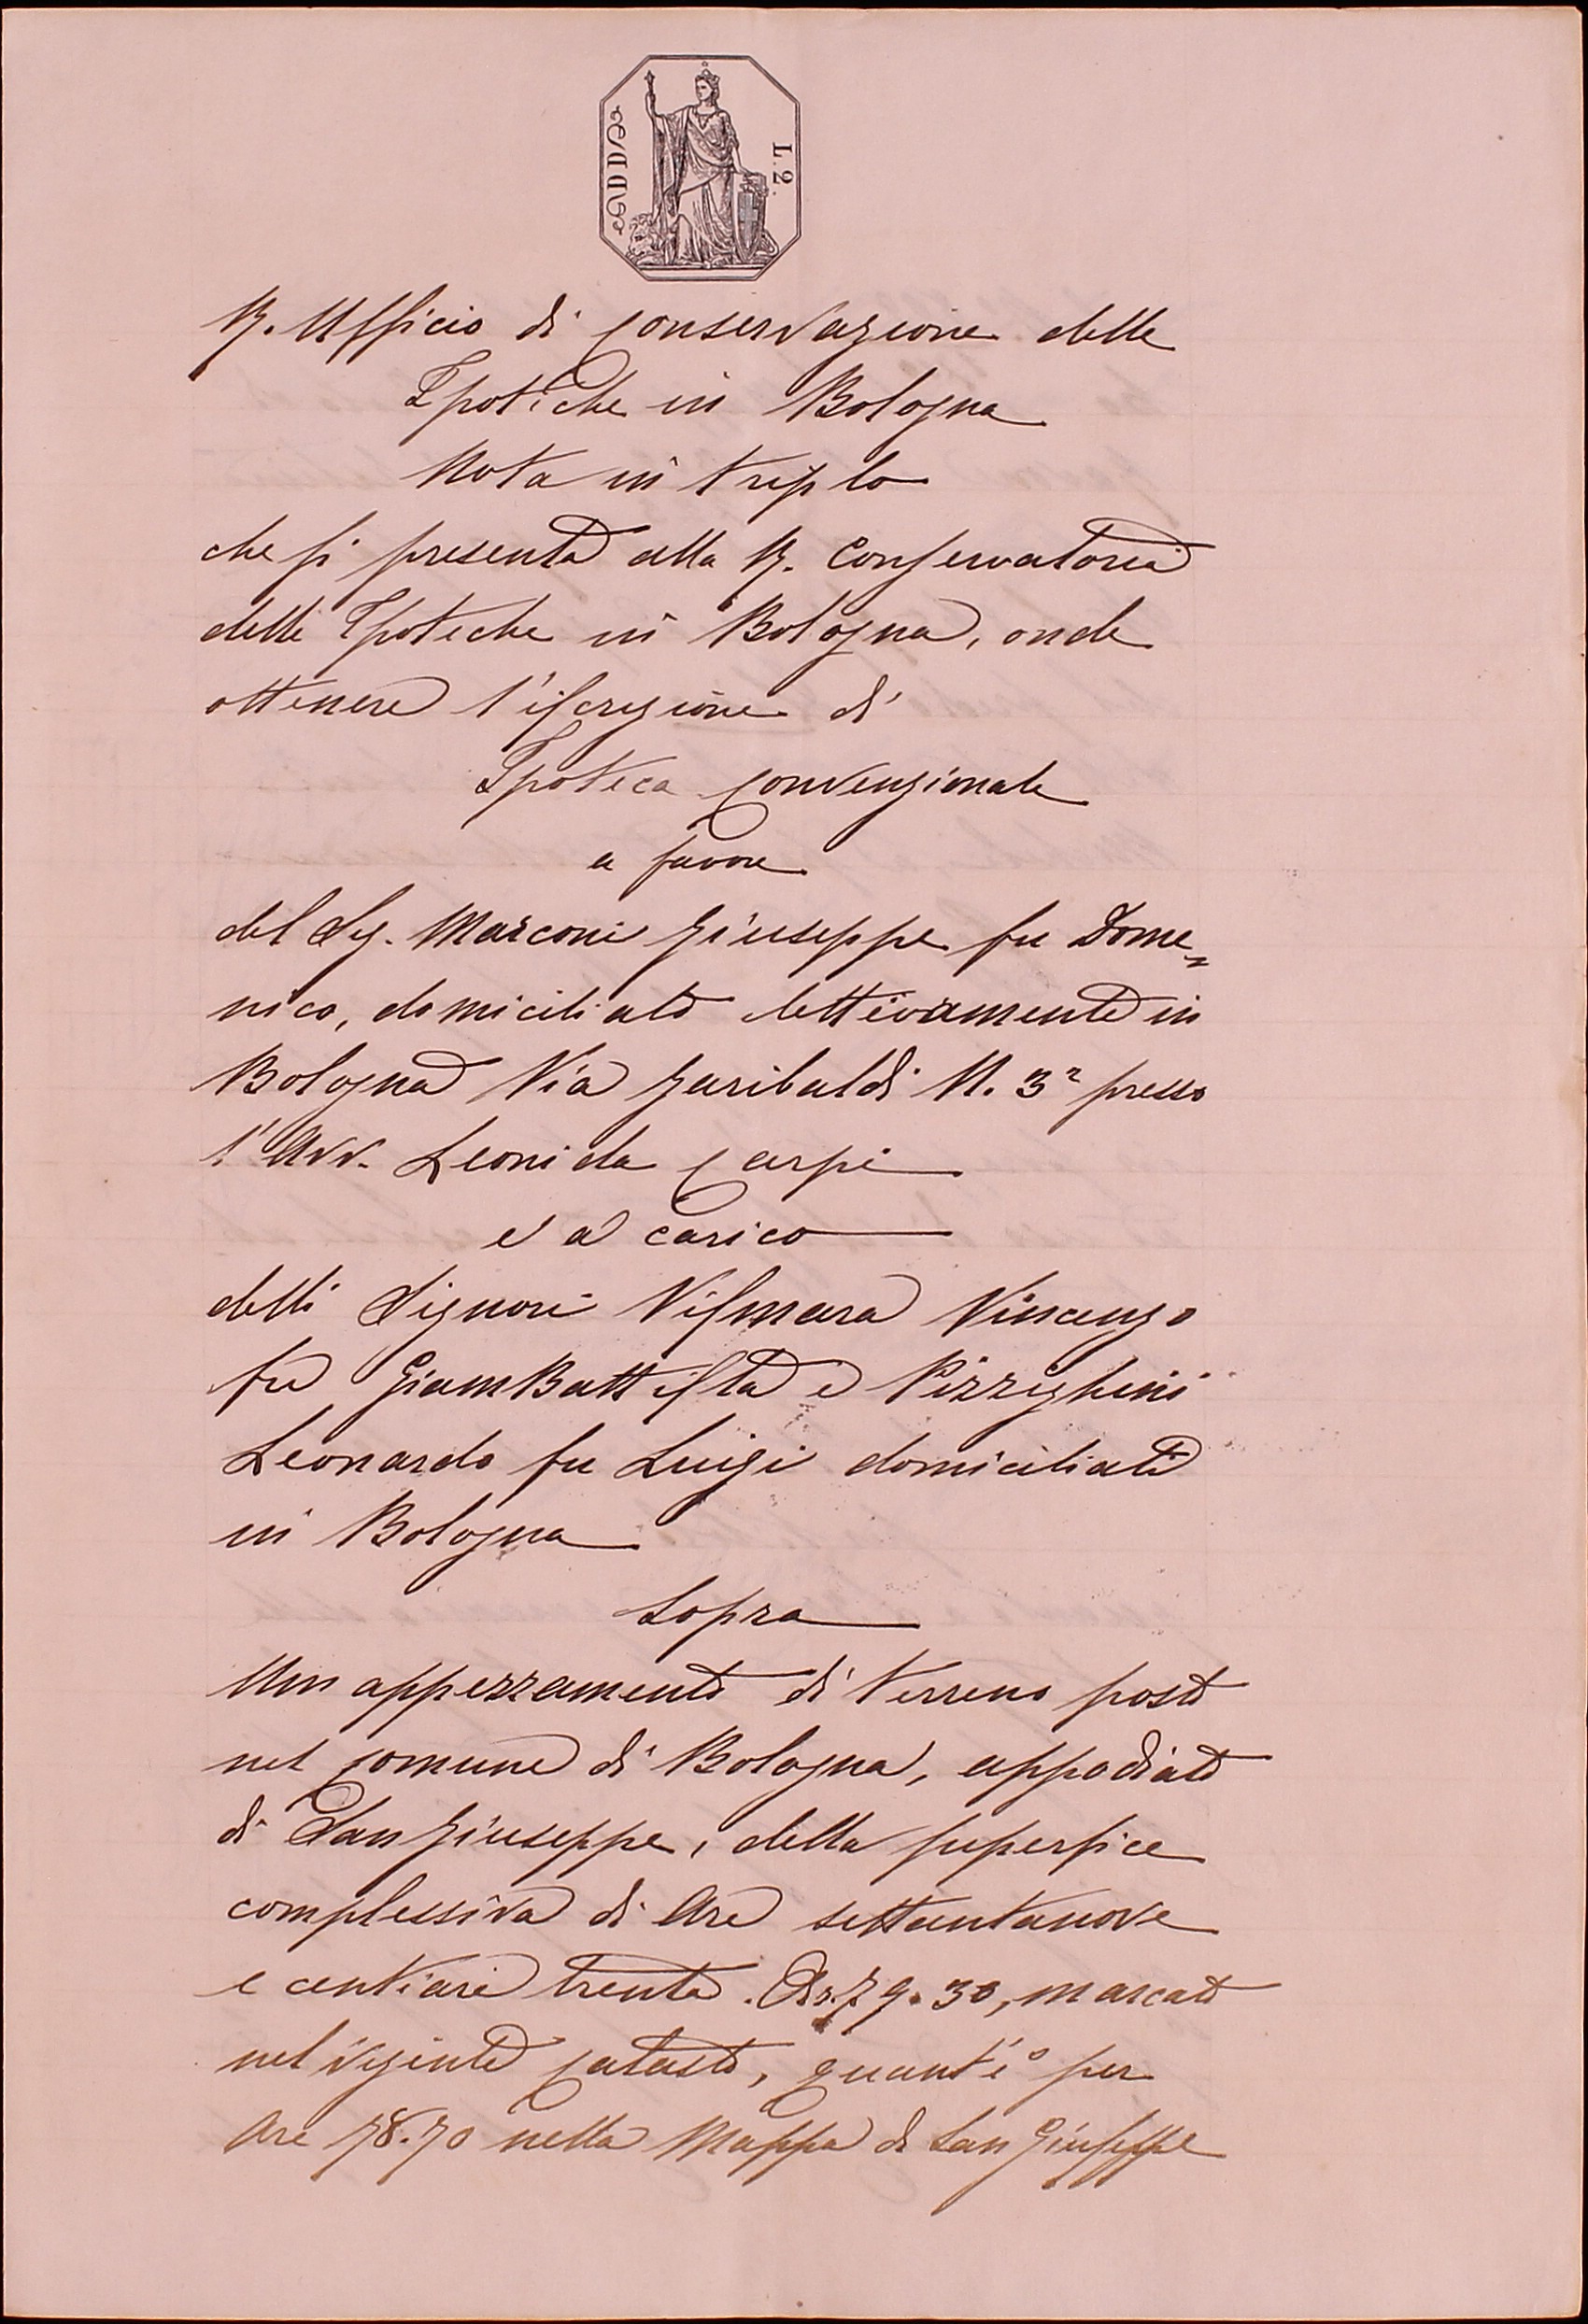 L. 2.
DUE
R. Ufficio di Conservazione delle
Ipoteche in Bologna
Nota in triplo
che si presenta alla R. Conservatoria
delle Ipoteche in Bologna, onde
ottenere l'iscrizione di
Ipoteca Convenzionale
a favore
del Sig. Marconi Giuseppe fu Dome=
nico, domiciliato lettivamente in
Bologna Via Garibaldi N. 3 presso
l'Avv. Leonida Carpi
e a carico
delli Signori Vismara Vincenzo
fu GiamBattista e Pizzighini
Leonardo fu Luigi domiciliati
in Bologna
Sopra
Un appezzamento di terreno posto
nel Comune di Bologna, appodiato
di San Giuseppe, della superfice
complessiva di Are settantanove
e centiare trenta. Ar. 79.30, marcato
nel vigente Catasto, quant'è per
Are 78.70 nella Mappa di San Giuseppe